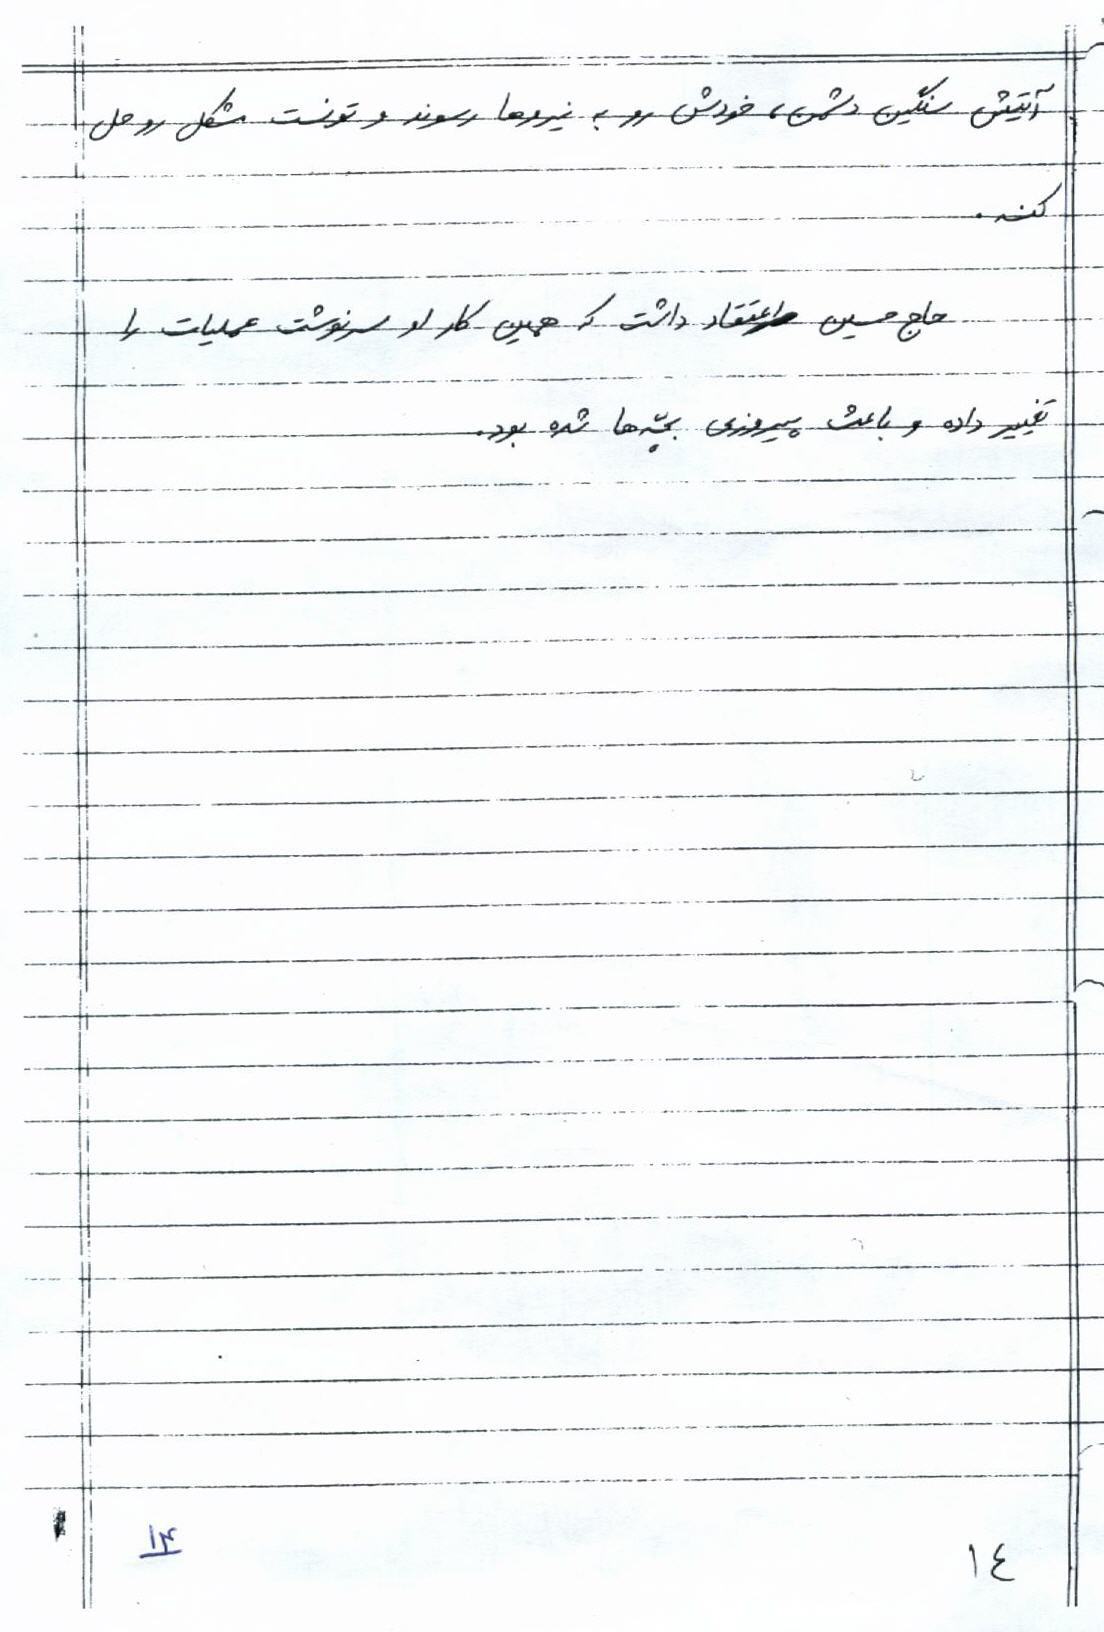 آتیش سنگین دشمن، خودش رو به نیروها رسوند و تونست مشکل رو حل
کنه.
حاج حسین اعتقاد داشت که همین کار او سرنوشت عملیات را
تغییر داده و باعث پیروزی بچّه‌ها شده بود.
۱۴
١٤